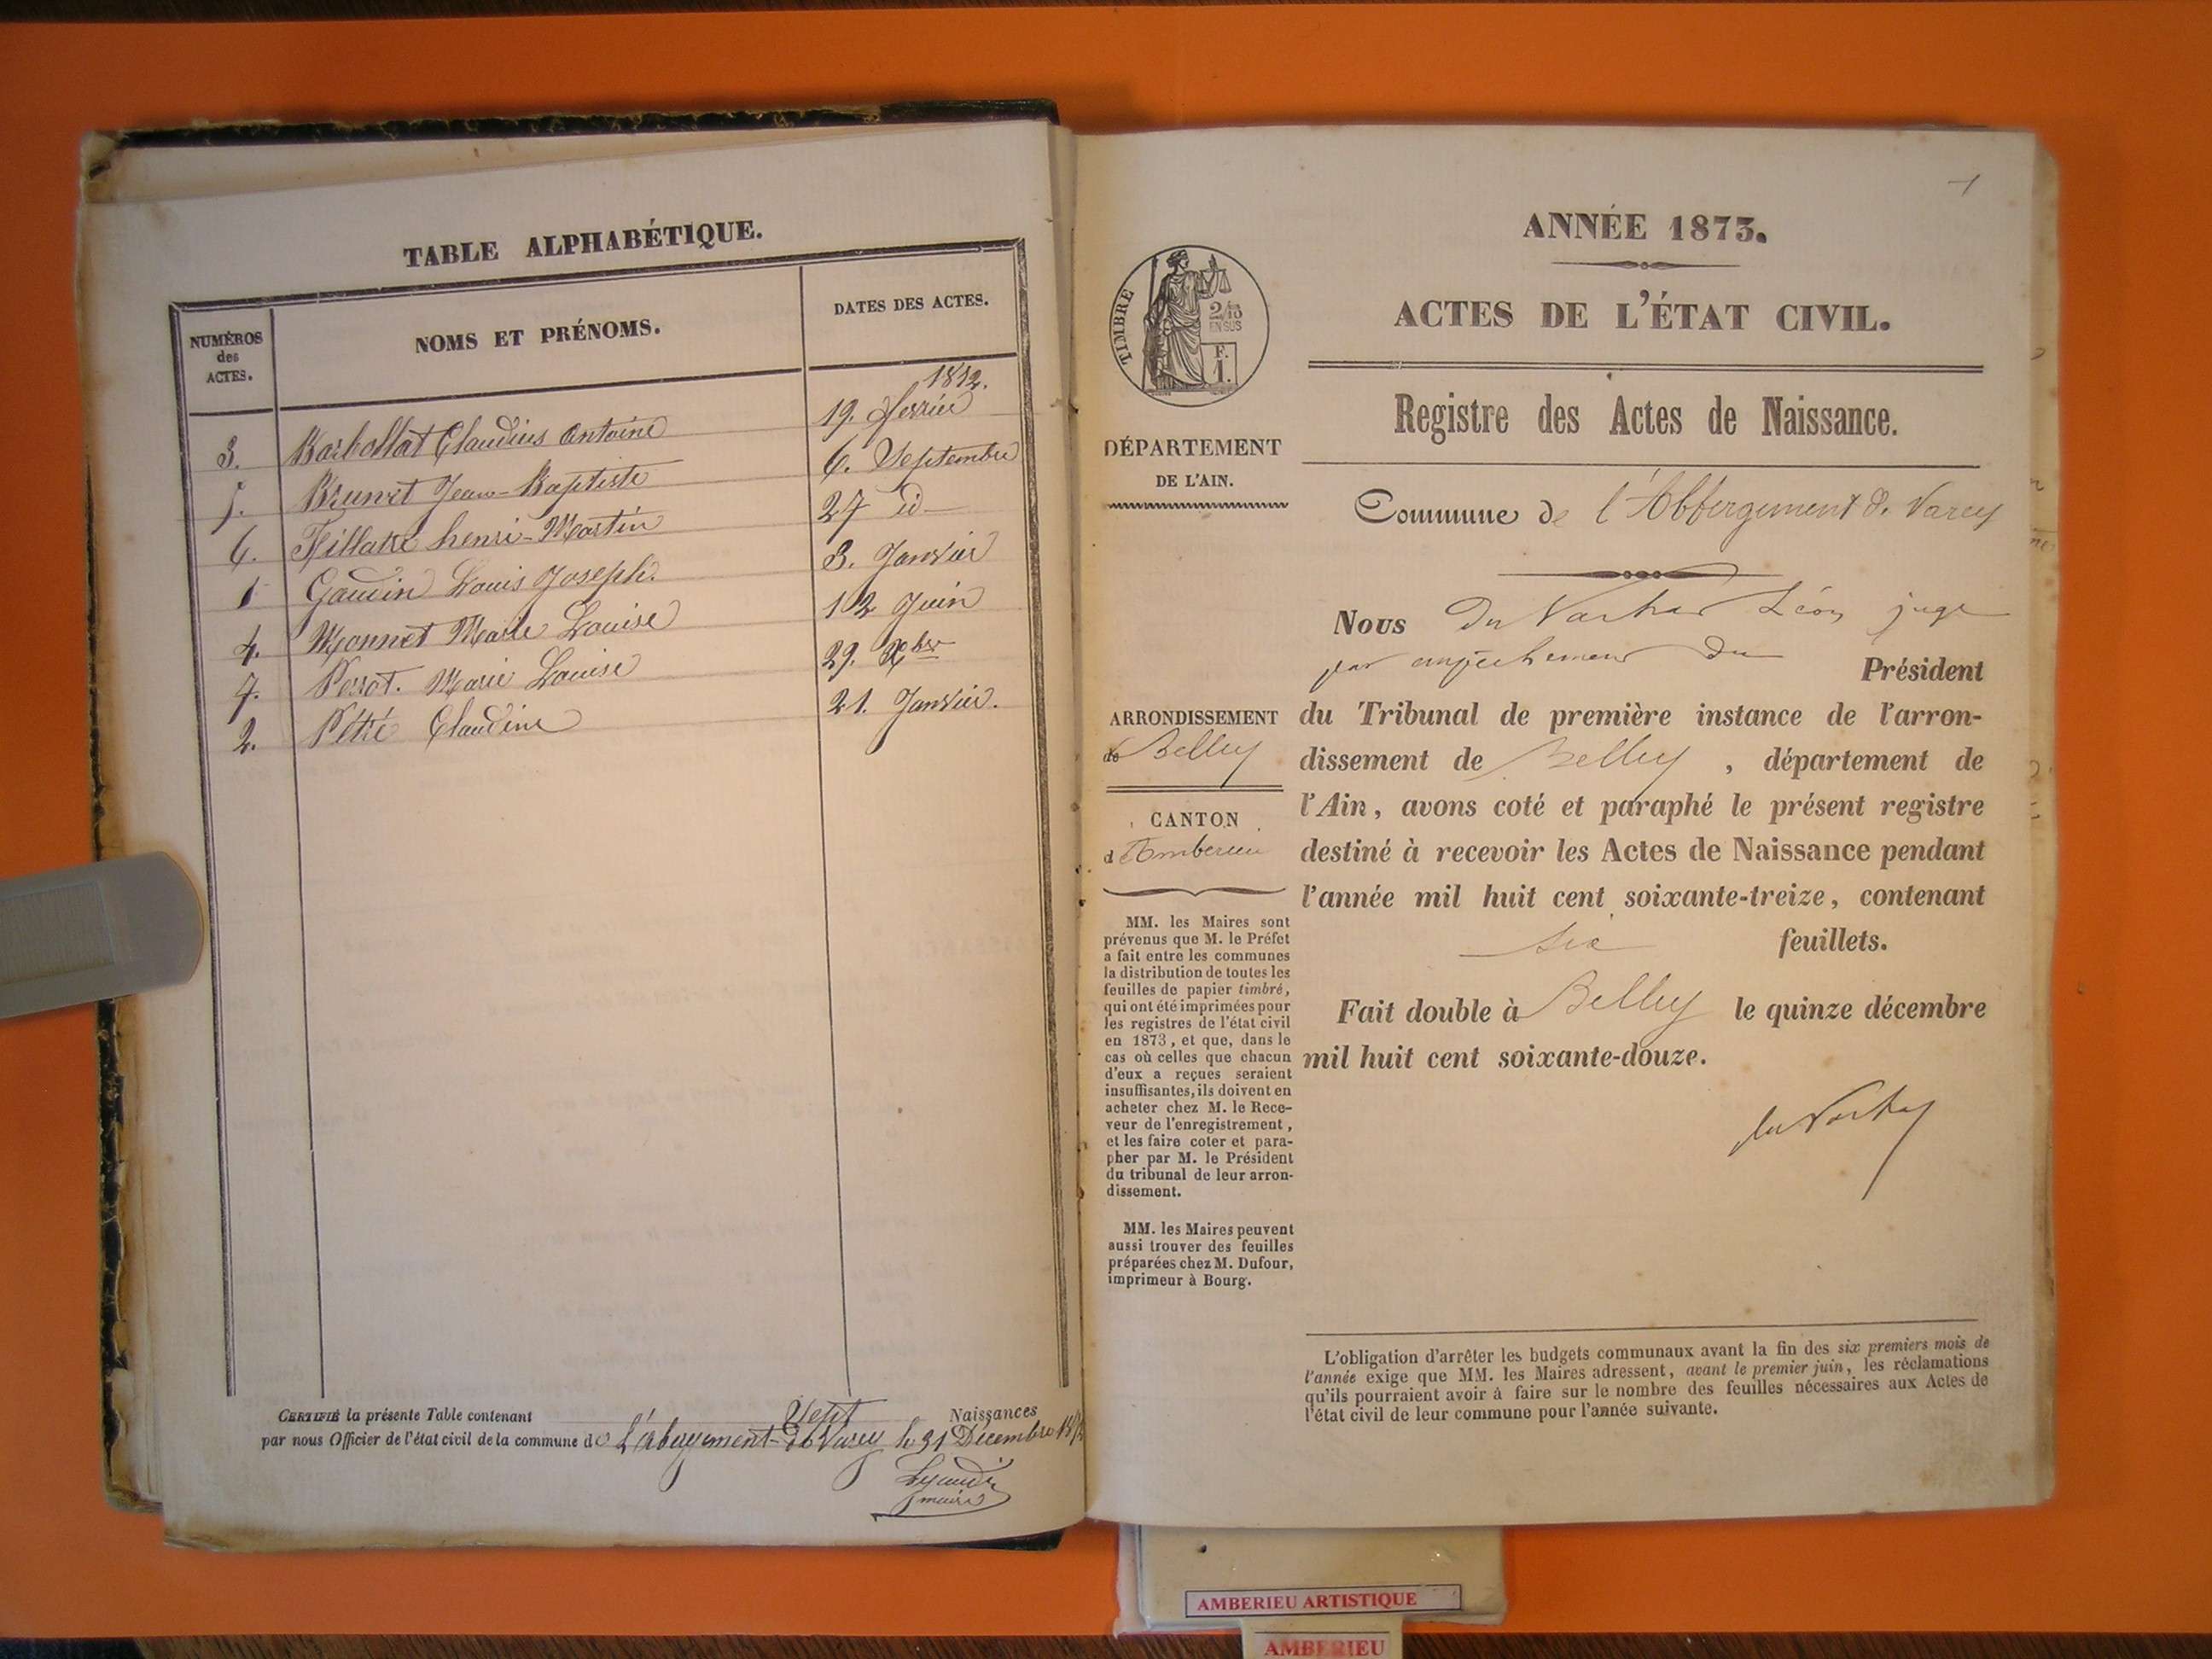 TABLE ALPHABÉTIQUE.
NUMÉROS des ACTES.
NOMS ET PRÉNOMS.
DATES DES ACTES.
1872.
3. Barbollat Claudius Antoine 19. février
5. Brunet Jean-Baptiste 6. Septembre
6. henri-Martin 27 id
1 Gaudin Louis Joseph. 3. Janvier
4. Monnet Marie Louise 12 Juin
7. Perrot. Marie Louise 29. Xbre
2. Claudine 21. Janvier.
CERTIFIÉ la présente Table contenant Sept Naissances
par nous Officier de l'état civil de la commune de L'abergement-de Varey le 31 Décembre 1872
maire
1
ANNÉE 1873.
ACTES DE L'ÉTAT CIVIL.
TIMBRE
2/10
EN SUS
F.
1.
Registre des Actes de Naissance.
DÉPARTEMENT
DE L'AIN.
Commune de l'Abbergement de Varey
Nous Du Léon juge
par empêchement du Président
ARRONDISSEMENT
de Belley
CANTON
d'Amberieu
du Tribunal de première instance de l'arron-
dissement de Belley, département de
l'Ain, avons coté et paraphé le présent registre
destiné à recevoir les Actes de Naissance pendant
l'année mil huit cent soixante-treize, contenant
six feuillets.
Fait double à Belley le quinze décembre
mil huit cent soixante-douze.
MM. les Maires sont
prévenus que M. le Préfet
a fait entre les communes
la distribution de toutes les
feuilles de papier timbré,
qui ont été imprimées pour
les registres de l'état civil
en 1873, et que, dans le
cas où celles que chacun
d'eux a reçues seraient
insuffisantes, ils doivent en
acheter chez M. le Rece-
veur de l'enregistrement,
et les faire coter et para-
pher par M. le Président
du tribunal de leur arron-
dissement.
MM. les Maires peuvent
aussi trouver des feuilles
préparées chez M. Dufour,
imprimeur à Bourg.
L'obligation d'arrêter les budgets communaux avant la fin des six premiers mois de
l'année exige que MM. les Maires adressent, avant le premier juin, les réclamations
qu'ils pourraient avoir à faire sur le nombre des feuilles nécessaires aux Actes de
l'état civil de leur commune pour l'année suivante.
AMBERIEU ARTISTIQUE
AMBERIEU